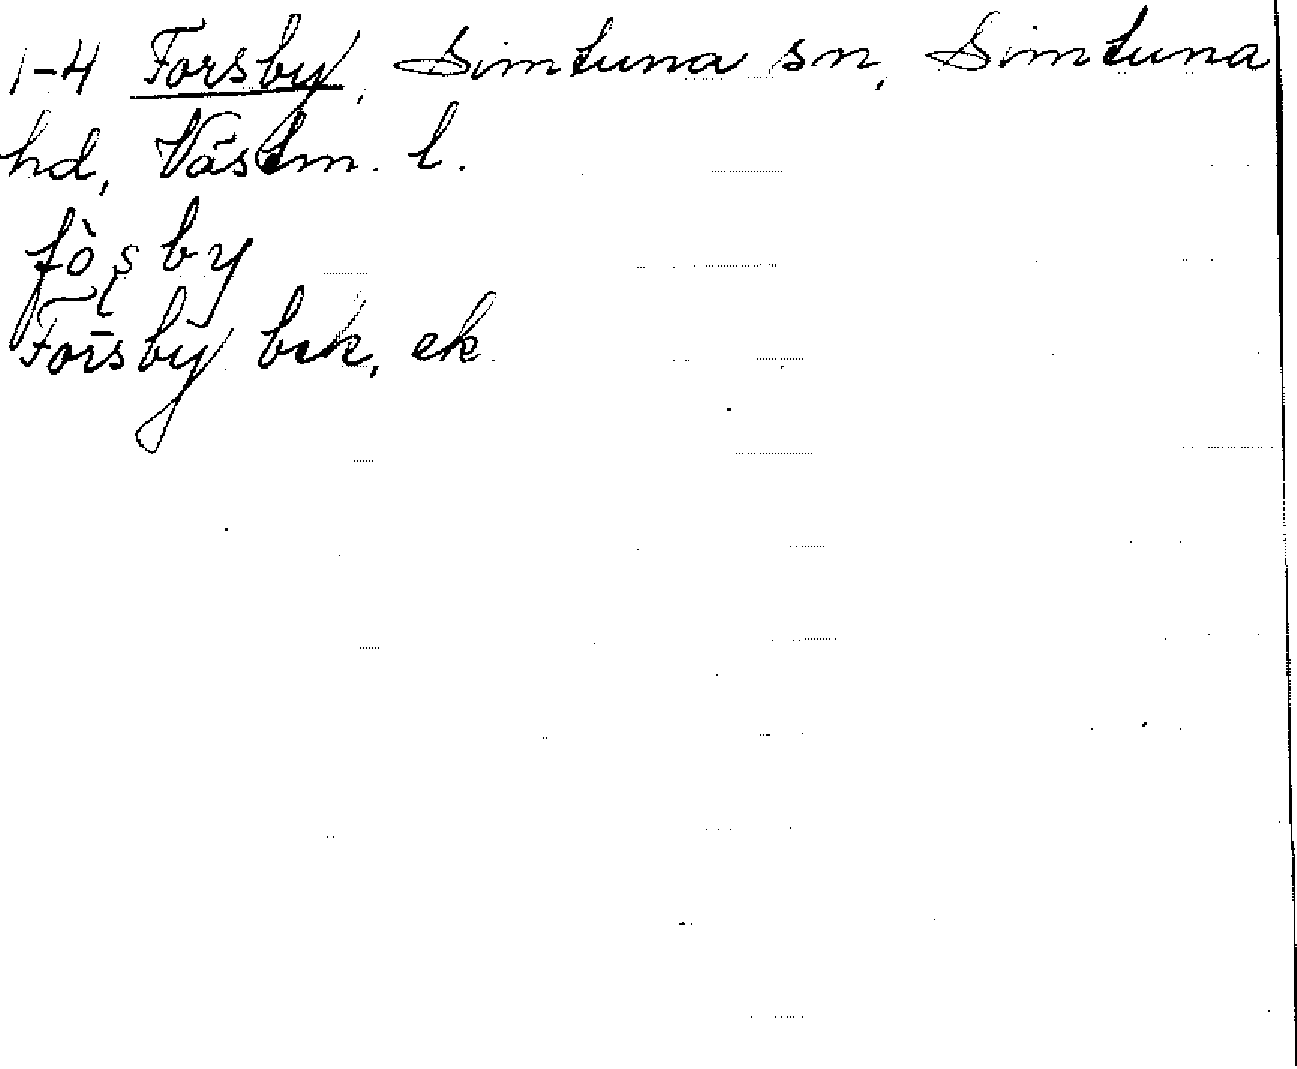 1-4 Forsby, Simtuna sn, Simtuna
hd, Västm. l.
fò̀ʂby
Forsby bek, ek